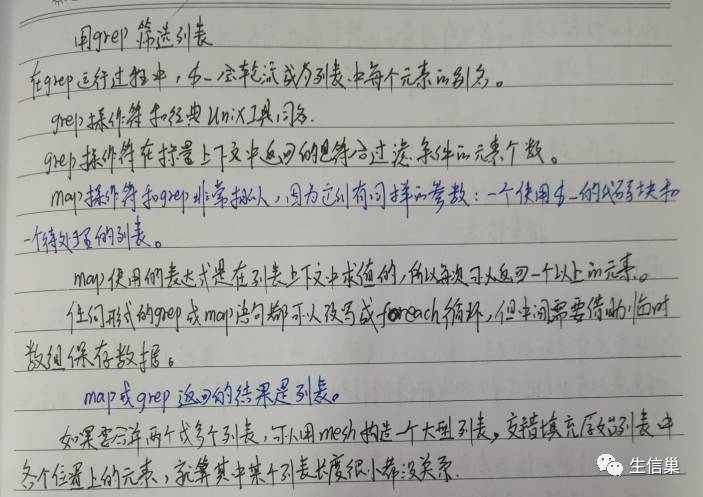 用grep 筛选列表
在grep运行过程中，$_会轮流成为列表中每个元素的别名。
grep操作符和经典Unix工具同名.
grep操作符在标量上下文中返回的是符合过滤条件的元素个数。
map操作符和grep非常相似，因为它们有同样的参数：一个使用$_的代码块和
一个待处理的列表。
map使用的表达式是在列表上下文中求值的，所以每次可以返回一个以上的元素。
任何形式的grep或map语句都可以改写成foreach循环，但中间需要借助临时
数组保存数据。
map或grep返回的结果是列表。
如果要合并两个或多个列表，可以用mesh构造一个大型列表，交替填充原始列表中
各个位置上的元素，就算其中某个列表长度很小都没关系.
生信巢